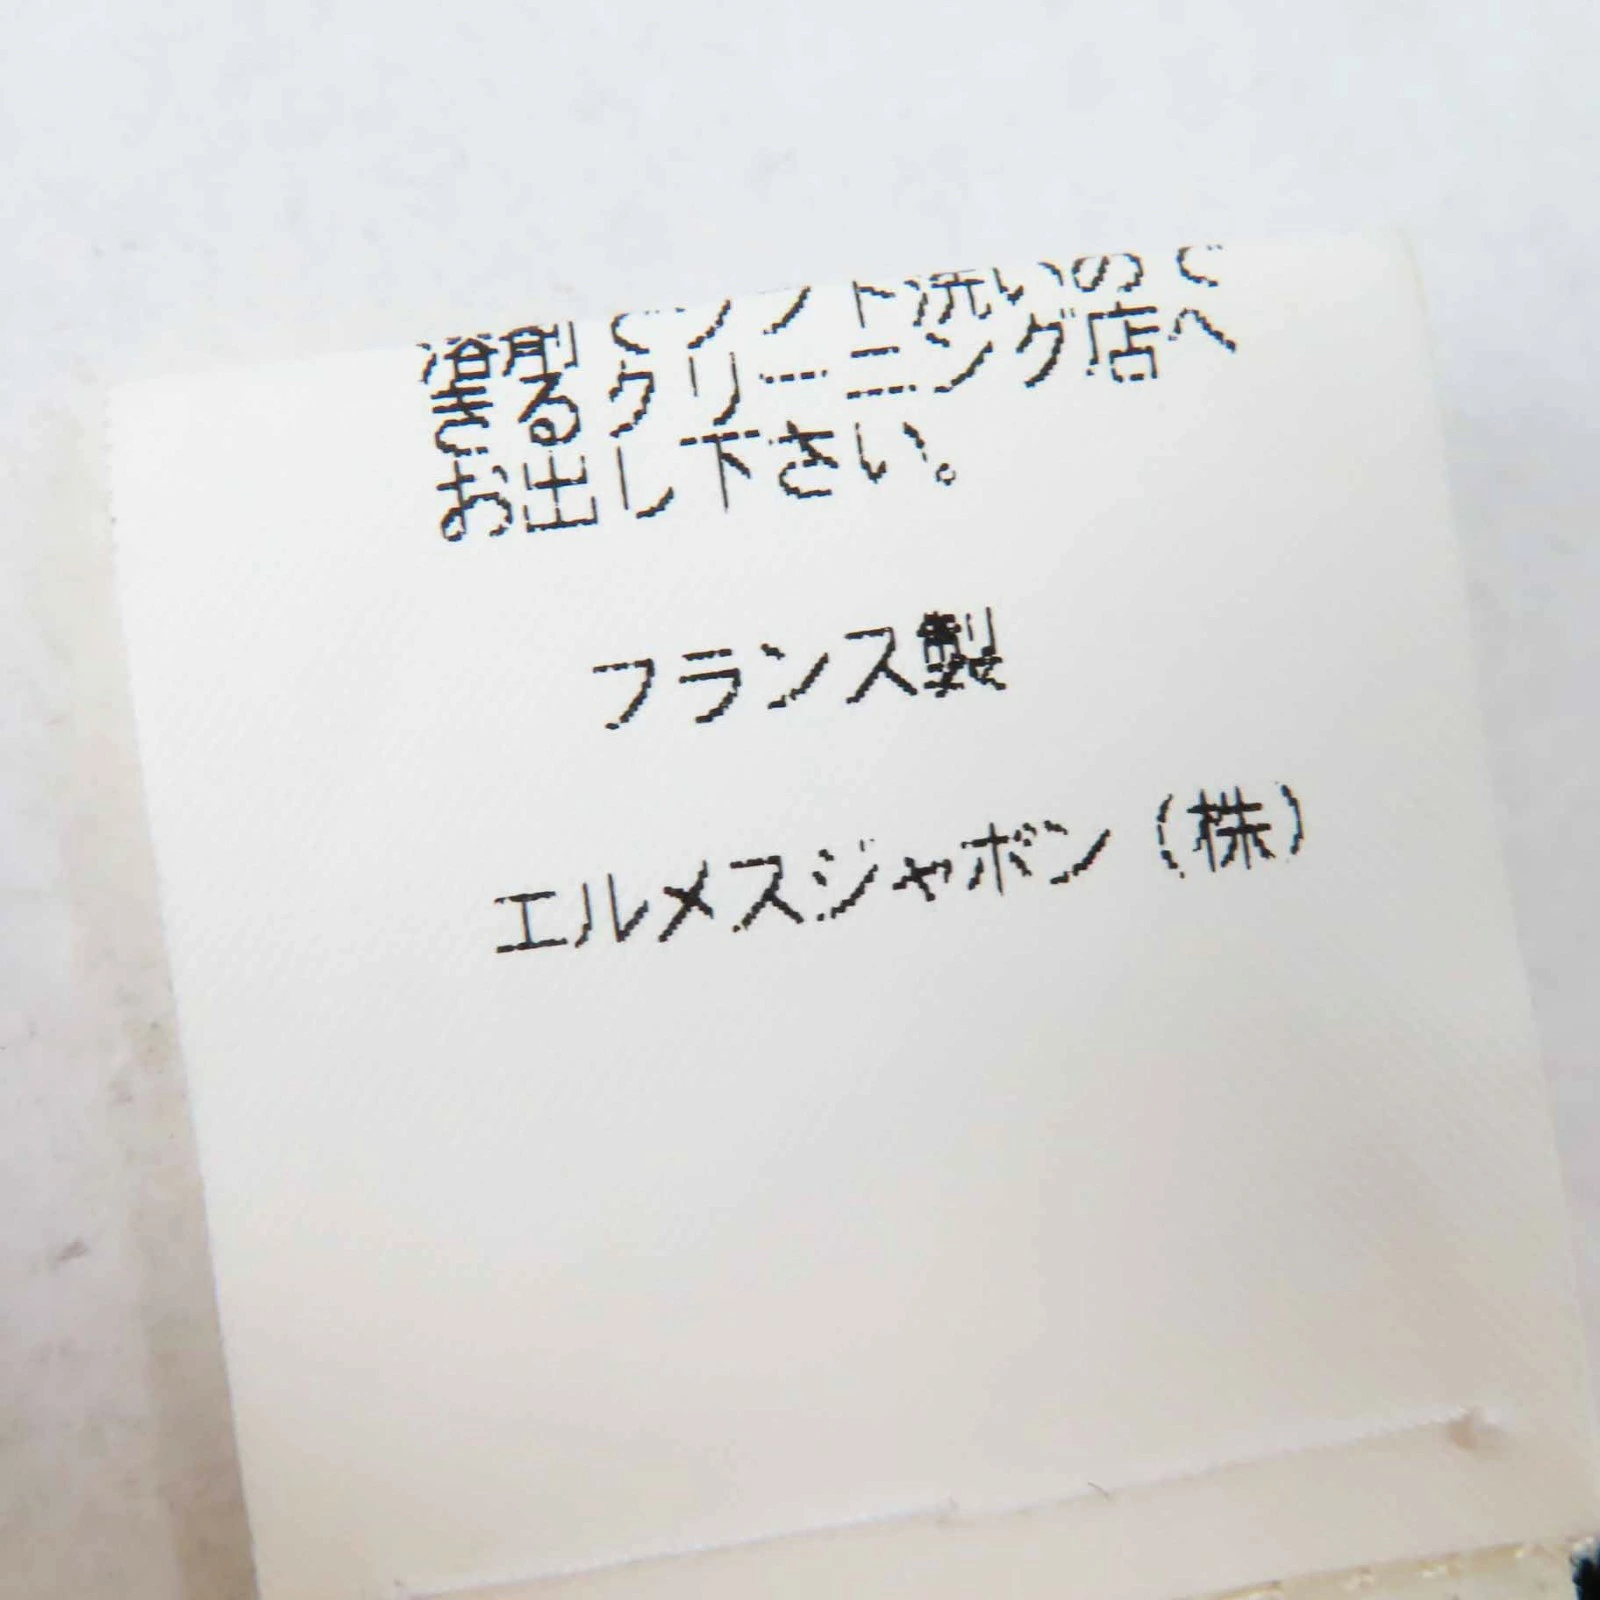 溶剤でソフト洗いので
きるクリーニング店へ
お出し下さい。
フランス製
エルメスジャポン（株）